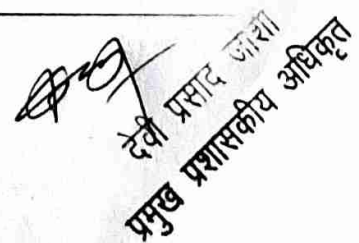 देवी प्रसाद ओझा
प्रमुख प्रशासकीय अधिकृत